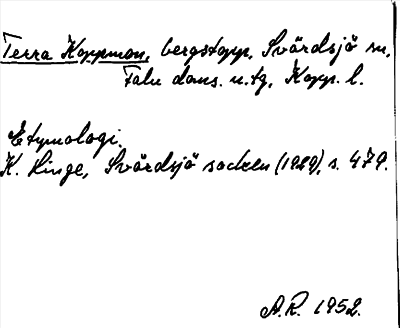 Terra Koppmon, bergstopp, Svärdsjö sn,
Falu doms. n.tg, Kopp. l.
Etymologi.
K. Hinge, Svärdsjö socken (1929), s. 479.
A.R. 1952.